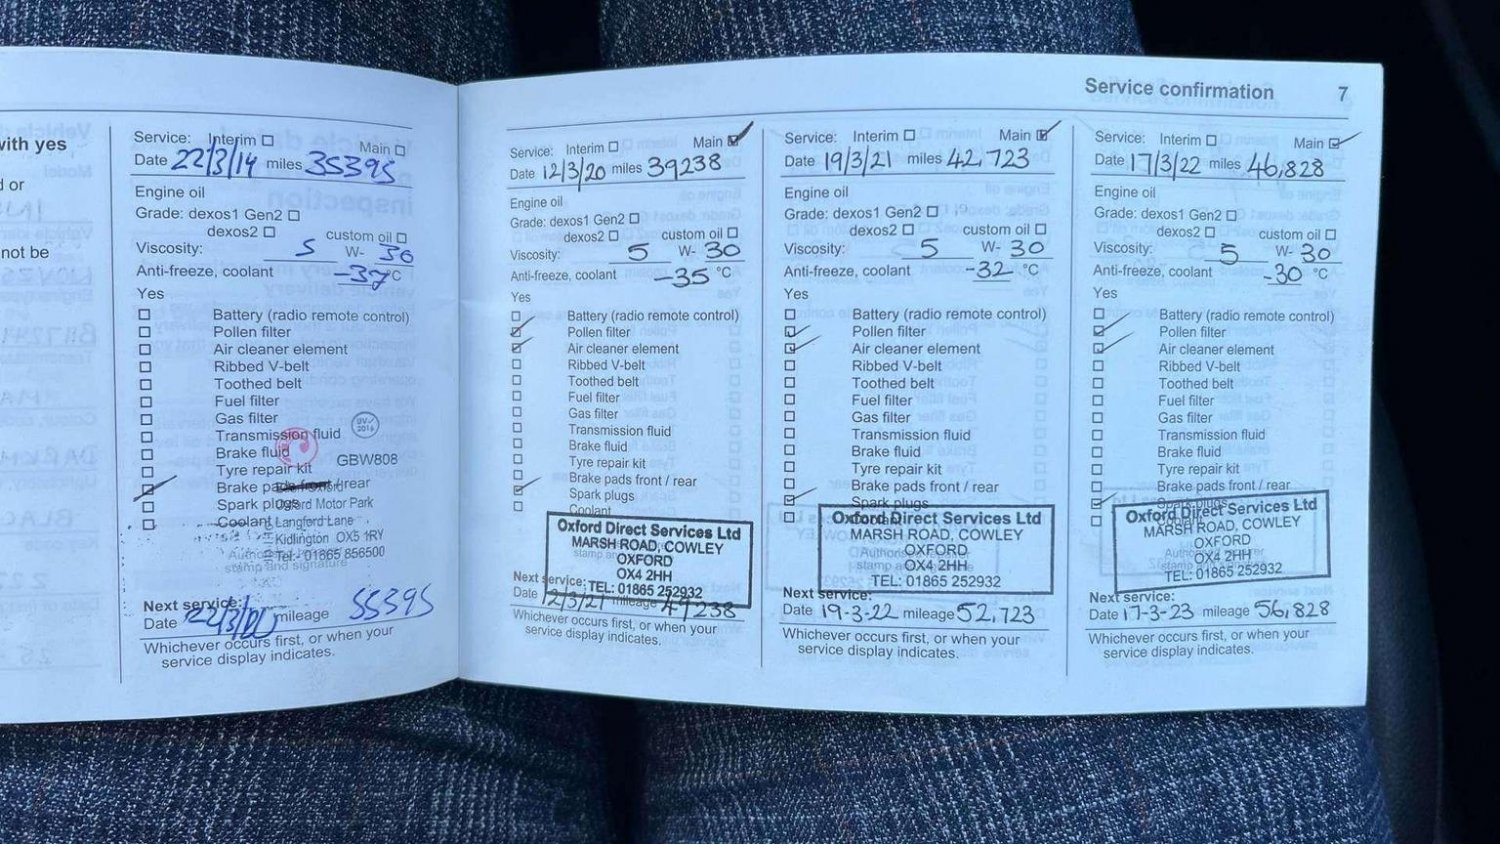 Service confirmation 7
with yes
d or
not be
Service: Interim Main
Date 22/3/19 miles 35395
Engine oil
Grade: dexos1 Gen2
dexos2 custom oil
Viscosity: 5 W- 30
Anti-freeze, coolant -37 °C
Yes
Battery (radio remote control)
Pollen filter
Air cleaner element
Ribbed V-belt
Toothed belt
Fuel filter
Gas filter
Transmission fluid
Brake fluid
Tyre repair kit GBW808
Brake pads front / rear
Spark plugs Oxford Motor Park
Coolant Langford Lane
Kidlington OX5 1RY
Tel: 01865 856500
stamp and signature
Next service:
Date 22/3/20 mileage 55395
Whichever occurs first, or when your
service display indicates.
Service: Interim Main
Date 12/3/20 miles 39238
Engine oil
Grade: dexos1 Gen2
dexos2 custom oil
Viscosity: 5 W- 30
Anti-freeze, coolant -35 °C
Yes
Battery (radio remote control)
Pollen filter
Air cleaner element
Ribbed V-belt
Toothed belt
Fuel filter
Gas filter
Transmission fluid
Brake fluid
Tyre repair kit
Brake pads front / rear
Spark plugs
Coolant
Oxford Direct Services Ltd
MARSH ROAD, COWLEY
OXFORD
OX4 2HH
TEL: 01865 252932
Next service:
Date 12/3/21 mileage 49238
Whichever occurs first, or when your
service display indicates.
Service: Interim Main
Date 19/3/21 miles 42,723
Engine oil
Grade: dexos1 Gen2
dexos2 custom oil
Viscosity: 5 W- 30
Anti-freeze, coolant -32 °C
Yes
Battery (radio remote control)
Pollen filter
Air cleaner element
Ribbed V-belt
Toothed belt
Fuel filter
Gas filter
Transmission fluid
Brake fluid
Tyre repair kit
Brake pads front / rear
Spark plugs
Oxford Direct Services Ltd
MARSH ROAD, COWLEY
OXFORD
OX4 2HH
TEL: 01865 252932
Next service:
Date 19-3-22 mileage 52,723
Whichever occurs first, or when your
service display indicates.
Service: Interim Main
Date 17/3/22 miles 46,828
Engine oil
Grade: dexos1 Gen2
dexos2 custom oil
Viscosity: 5 W- 30
Anti-freeze, coolant -30 °C
Yes
Battery (radio remote control)
Pollen filter
Air cleaner element
Ribbed V-belt
Toothed belt
Fuel filter
Gas filter
Transmission fluid
Brake fluid
Tyre repair kit
Brake pads front / rear
Spark plugs
Oxford Direct Services Ltd
MARSH ROAD, COWLEY
OXFORD
OX4 2HH
TEL: 01865 252932
Next service:
Date 17-3-23 mileage 56,828
Whichever occurs first, or when your
service display indicates.